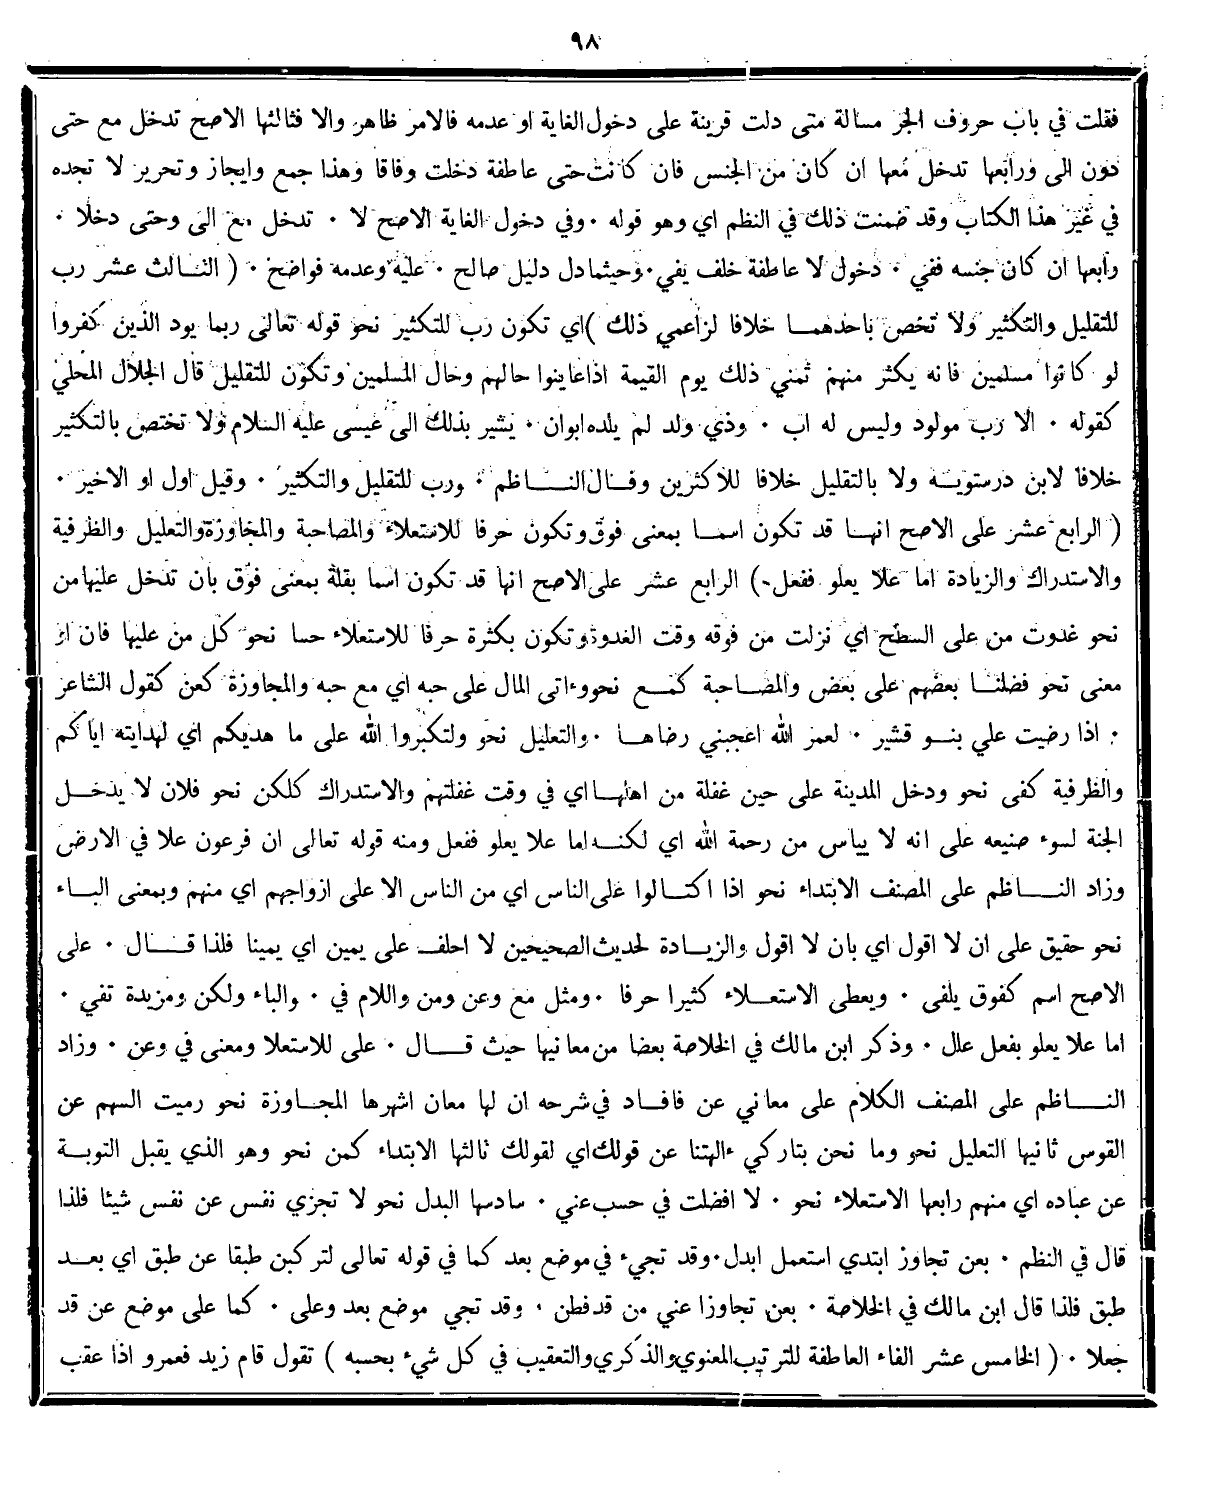 ٩٨
فقلت في باب حروف الجر مسالة متى دلت قرينة على دخول الغاية او عدمه فالامر ظاهر والا فثالثها الاصح تدخل مع حتى
دون الى ورابعها تدخل معها ان كان من الجنس فان كانت حتى عاطفة دخلت وفاقا وهذا جمع وايجاز وتحرير لا تجده
في غير هذا الكتاب وقد ضمنت ذلك في النظم اي وهو قوله · وفي دخول الغاية الاصح لا · تدخل مع الى وحتى دخلا ·
رابعها ان كان جنسه ففي · دخول لا عاطفة خلف يفي · وحيثما دل دليل صالح · عليه وعدمه فواضح · ( الثالث عشر رب
للتقليل والتكثير ولا تخص باحدهما خلافا لزاعمي ذلك ) اي تكون رب للتكثير نحو قوله تعالى ربما يود الذين كفروا
لو كانوا مسلمين فانه يكثر منهم تمني ذلك يوم القيمة اذا عاينوا حالهم وحال المسلمين وتكون للتقليل قال الجلال المحلي
كقوله · الا رب مولود وليس له اب · وذي ولد لم يلده ابوان · يشير بذلك الى عيسى عليه السلام ولا تختص بالتكثير
خلافا لابن درستويه ولا بالتقليل خلافا للاكثرين وقال الناظم · ورب للتقليل والتكثير · وقيل اول او الاخير ·
( الرابع عشر على الاصح انها قد تكون اسما بمعنى فوق وتكون حرفا للاستعلاء والمصاحبة والمجاوزة والتعليل والظرفية
والاستدراك والزيادة اما علا يعلو ففعل · ) الرابع عشر على الاصح انها قد تكون اسما بقلة بمعنى فوق بان تدخل عليها من
نحو غدوت من على السطح اي نزلت من فوقه وقت الغدوة وتكون بكثرة حرفا للاستعلاء حسا نحو كل من عليها فان او
معنى نحو فضلنا بعضهم على بعض والمصاحبة كمع نحو وءاتى المال على حبه اي مع حبه والمجاوزة كعن كقول الشاعر
· اذا رضيت علي بنو قشير · لعمر الله اعجبني رضاها · والتعليل نحو ولتكبروا الله على ما هديكم اي لهدايته اياكم
والظرفية كفى نحو ودخل المدينة على حين غفلة من اهلها اي في وقت غفلتهم والاستدراك كلكن نحو فلان لا يدخل
الجنة لسوء صنيعه على انه لا يياس من رحمة الله اي لكنه اما علا يعلو ففعل ومنه قوله تعالى ان فرعون علا في الارض
وزاد الناظم على المصنف الابتداء نحو اذا اكتالوا على الناس اي من الناس الا على ازواجهم اي منهم وبمعنى الباء
نحو حقيق على ان لا اقول اي بان لا اقول والزيادة لحديث الصحيحين لا احلف على يمين اي يمينا فلذا قال · على
الاصح اسم كفوق يلفى · ويعطى الاستعلاء كثيرا حرفا · ومثل مع وعن ومن واللام في · والباء ولكن ومزيدة تفي ·
اما علا يعلو بفعل علل · وذكر ابن مالك في الخلاصة بعضا من معانيها حيث قال · على للاستعلا ومعنى في وعن · وزاد
الناظم على المصنف الكلام على معاني عن فافاد في شرحه ان لها معان اشهرها المجاوزة نحو رميت السهم عن
القوس ثانيها التعليل نحو وما نحن بتاركي ءالهتنا عن قولك اي لقولك ثالثها الابتداء كمن نحو وهو الذي يقبل التوبة
عن عباده اي منهم رابعها الاستعلاء نحو · لا افضلت في حسب عني · سادسها البدل نحو لا تجزي نفس عن نفس شيئا فلذا
قال في النظم · بعن تجاوز ابتدي استعمل ابدل · وقد تجيء في موضع بعد كما في قوله تعالى لتركبن طبقا عن طبق اي بعد
طبق فلذا قال ابن مالك في الخلاصة · بعن تجاوزا عني من قد فطن · وقد تجي موضع بعد وعلى · كما على موضع عن قد
جعلا · ( الخامس عشر الفاء العاطفة للترتيب المعنوي والذكري والتعقيب في كل شيء بحسبه ) تقول قام زيد فعمرو اذا عقب